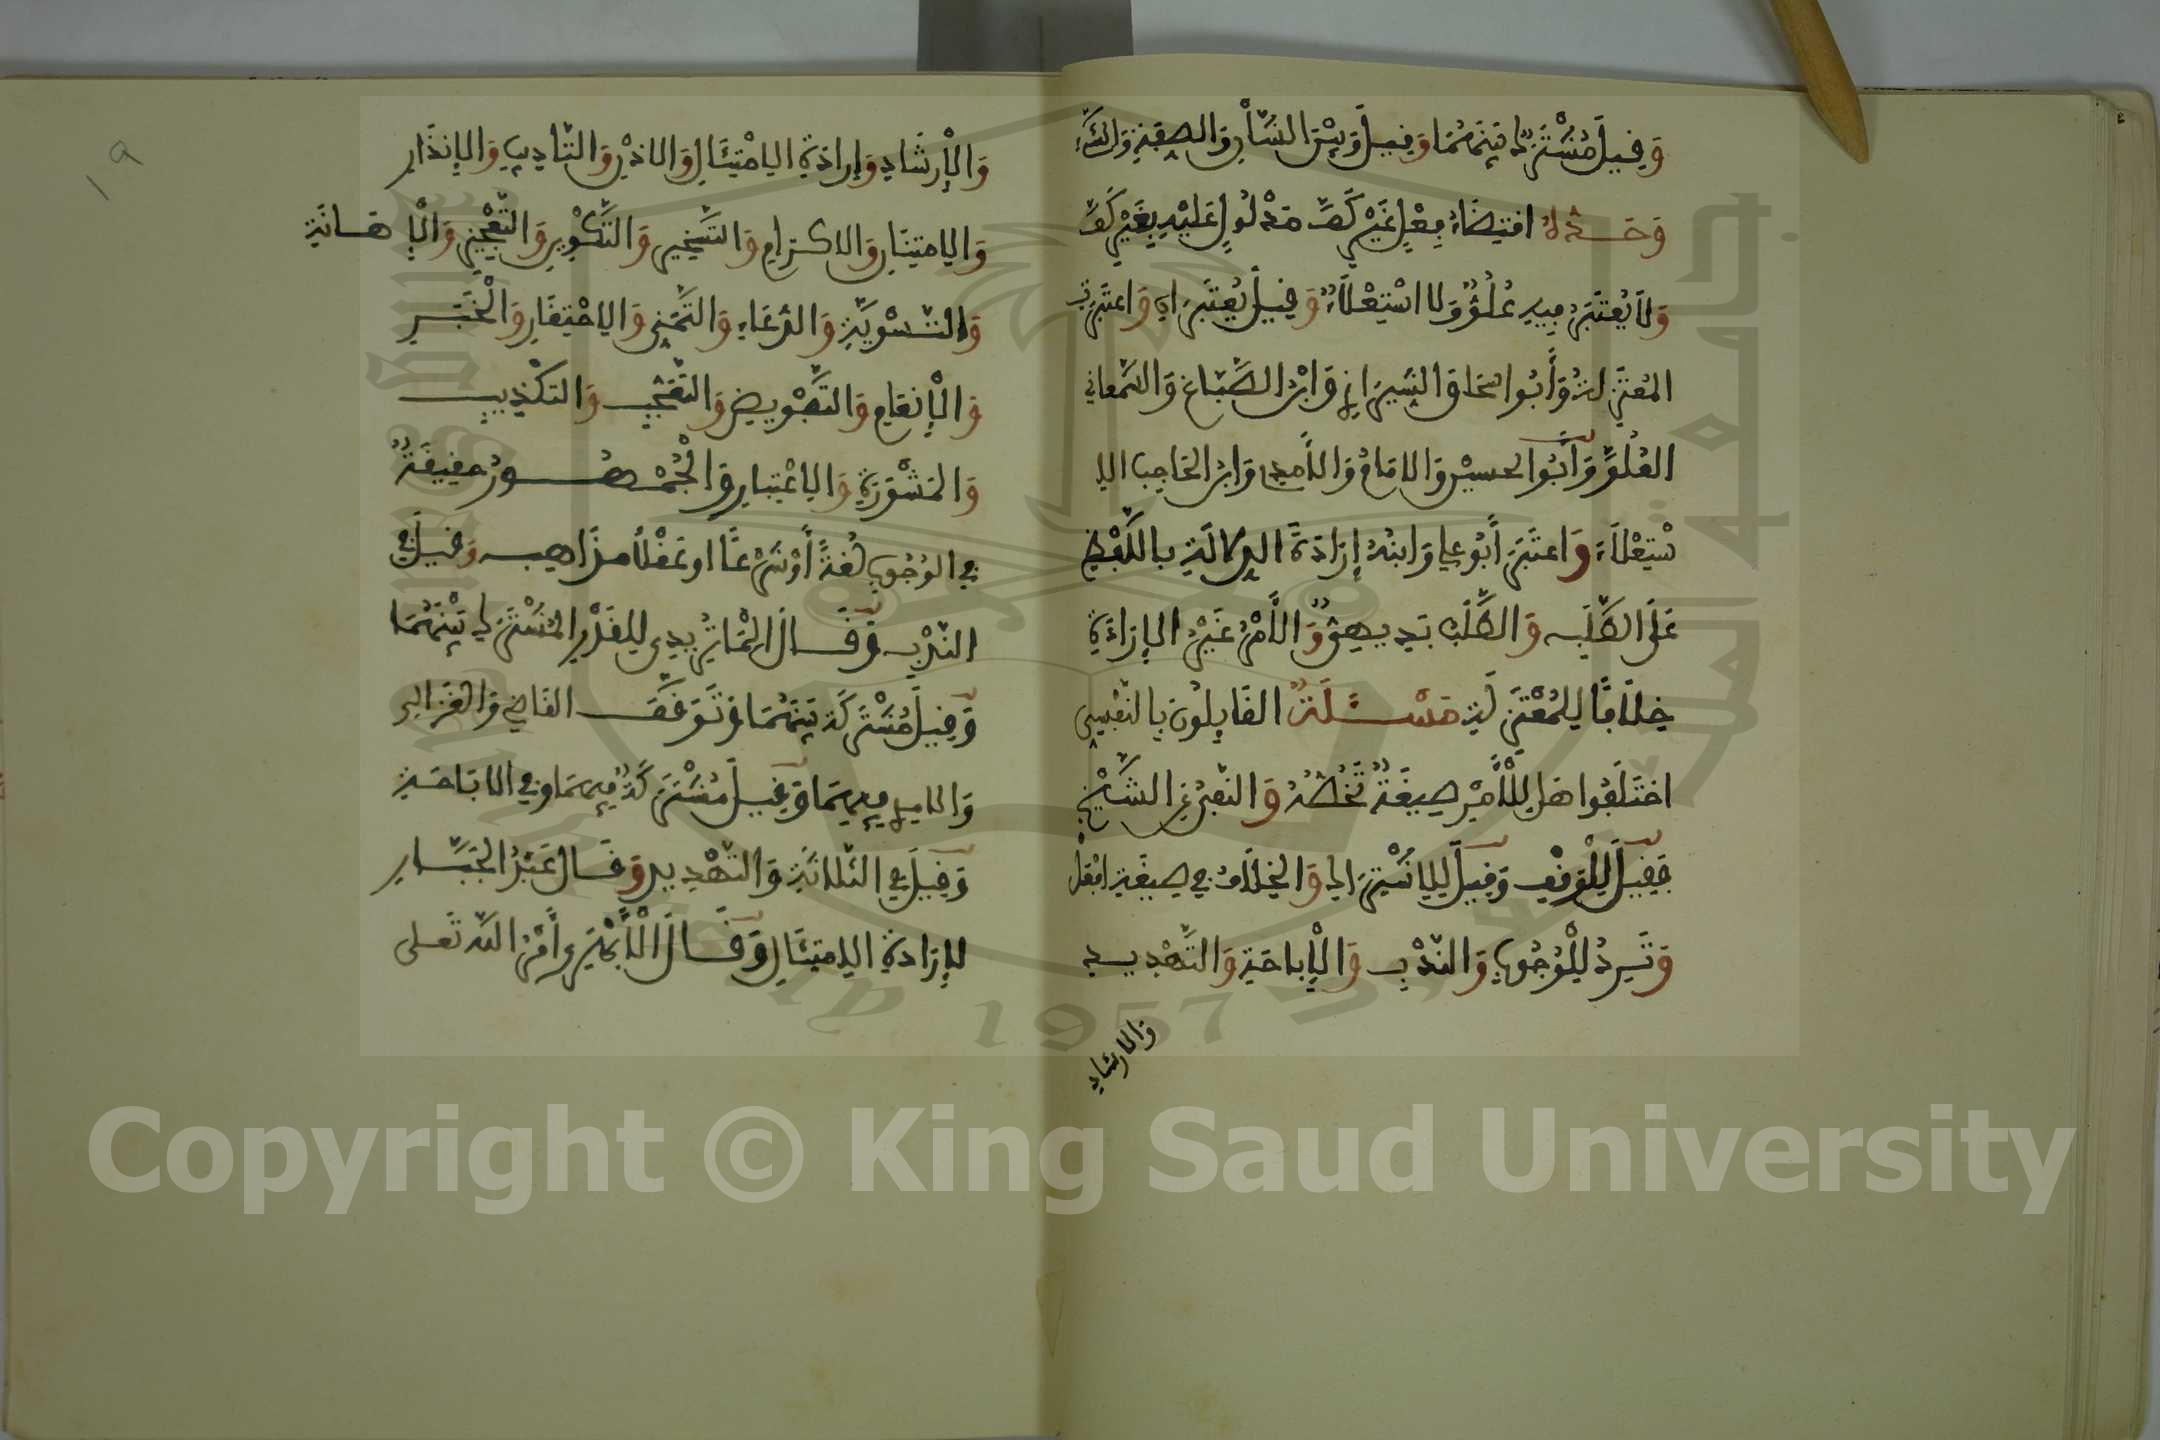 وَقِيلَ مُشْتَرَكٌ بَيْنَهُمَا وَقِيلَ وَبَيْنَ الشَّأْنِ وَالصِّفَةِ وَالشَّيْءِ
وَحَدُّهُ اقتِضَاءُ فِعْلٍ غَيْرِ كَفٍّ مَدْلُولٍ عَلَيْهِ بِغَيْرِ كَفَّ
وَلَا يُعْتَبَرُ فِيهِ عُلُوٌّ وَلا اسْتِعْلَاءٌ وَقِيلَ يُعْتَبَرَانِ وَاعتَبَرَتِ
المُعْتَزِلَةُ وَأَبُو اسحَاقَ الشِّيرَازِي وَابْنُ الصَّبَّاغِ وَالسَّمْعاني
العُلُوَّ وَأَبُو الحسين وَالامَامُ وَالأَمدِي وَابنُ الحَاجِبِ الا
سْتِعْلَاءَ وَاعتَبَرَ أَبُو علي وَابنُهُ إِرَادَةَ الدِّلالَةِ بِاللَّفْظِ
عَلَى الطَّلَبِ وَالطَّلَبُ بَدِيهِيٌّ وَالأَمْرُ غَيْرُ الإِرَادَةِ
خِلَافًا لِلْمُعْتَزِلَةِ مَسْئَلَةٌ القَايِلُونَ بِالنَّفْسِي
اخْتَلَفُوا هَل لِلْأَمْرِ صِيغَةٌ تَخُصُّهُ وَالنَّفْيُ عَنِ الشَّيْخِ
فَقِيلَ لِلْوَقْفِ وَقِيلَ لِلِاشْتِرَاكِ وَالخِلَافُ في صِيغَةِ افْعَلْ
وَتَرِدُ لِلْوُجُوبِ وَالنَّدْبِ وَالْإِباحَةِ وَالتَّهْدِيدِ
وَالارشاد
وَالْإِرْشَادِ وَإِرَادَةِ الامْتِثَالِ وَالاذْنِ وَالتَّادِيبِ وَالإِنذَارِ
وَالامتِنَانِ وَالاكرَامِ وَالتَّسْخِيرِ وَالتَّكْوِينِ وَالتَّعْجِيزِ وَالْإِهَانَةِ
وَالتَّسْوِيَةِ وَالدُّعَاءِ وَالتَّمَنِّي وَالاحْتِقَارِ وَالْخَبَرِ
وَالْإِنعَامِ وَالتَّفْوِيضِ وَالتَّعَجُّبِ وَالتَّكْذِيبِ
وَالمَشْوَرَةِ وَالِاعْتِبَارِ وَالْجُمْهُورُ حقِيقَةٌ
في الوُجُوبِ لُغَةً أَوْ شَرْعًا او عَقْلًا مذَاهِب وَقِيلَ في
النَّدْبِ وَقَالَ الْمَاتُرِيدِي لِلقَدْرِ المُشْتَرَكِ بَيْنَهُمَا
وَقِيلَ مُشْتَرَكَةٌ بَيْنَهُمَا وَتَوَقَّفَ القَاضِي وَالغَزَالِي
وَالامدِي فِيهِمَا وَقِيلَ مُشْتَرَكَةٌ فِيهِمَا وفي الابَاحَةِ
وَقِيلَ في الثَّلاثَةِ وَالتَّهْدِيدِ وَقَالَ عَبْدُ الجَبَّارِ
لِإِرَادَةِ الامتِثَالِ وَقَالَ الأَبْهَرِي أَمْرُ اللَّهِ تَعَلى
١٩
Copyright © King Saud University
1957